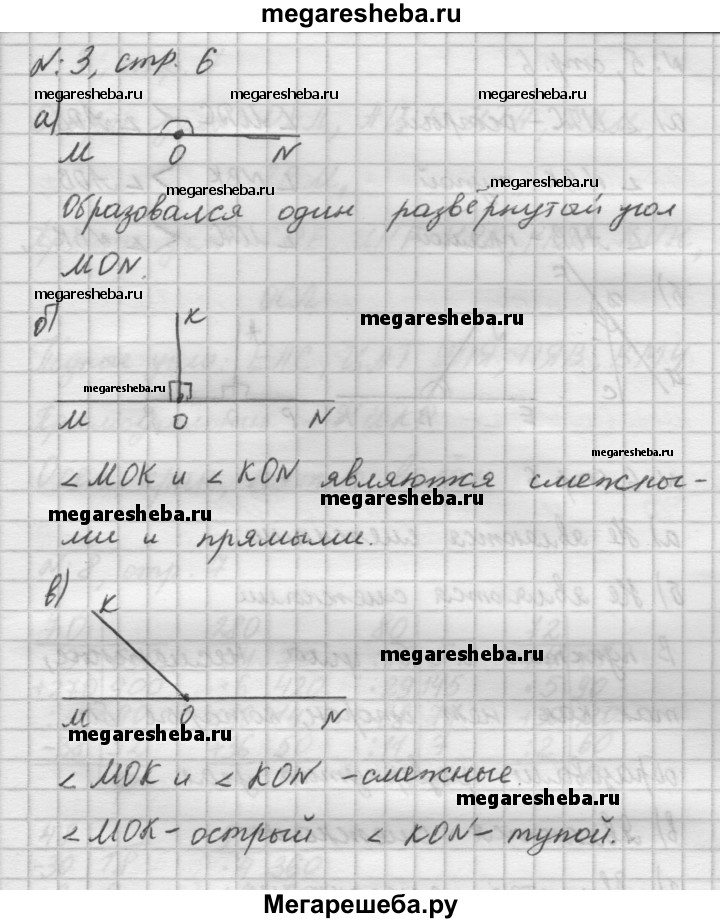 megaresheba.ru
N: 3, стр. 6
megaresheba.ru megaresheba.ru megaresheba.ru
а)
M O N
megaresheba.ru megaresheba.ru
Образовался один развёрнутый угол
MON.
megaresheba.ru
б) K megaresheba.ru
megaresheba.ru
M O N
megaresheba.ru
∠ MOK и ∠ KON являются смежны-
megaresheba.ru
megaresheba.ru
ми и прямыми.
в) K
megaresheba.ru
M O N
megaresheba.ru
∠ MOK и ∠ KON - смежные.
megaresheba.ru
∠ MOK - острый ∠ KON - тупой.
Мегарешеба.ру